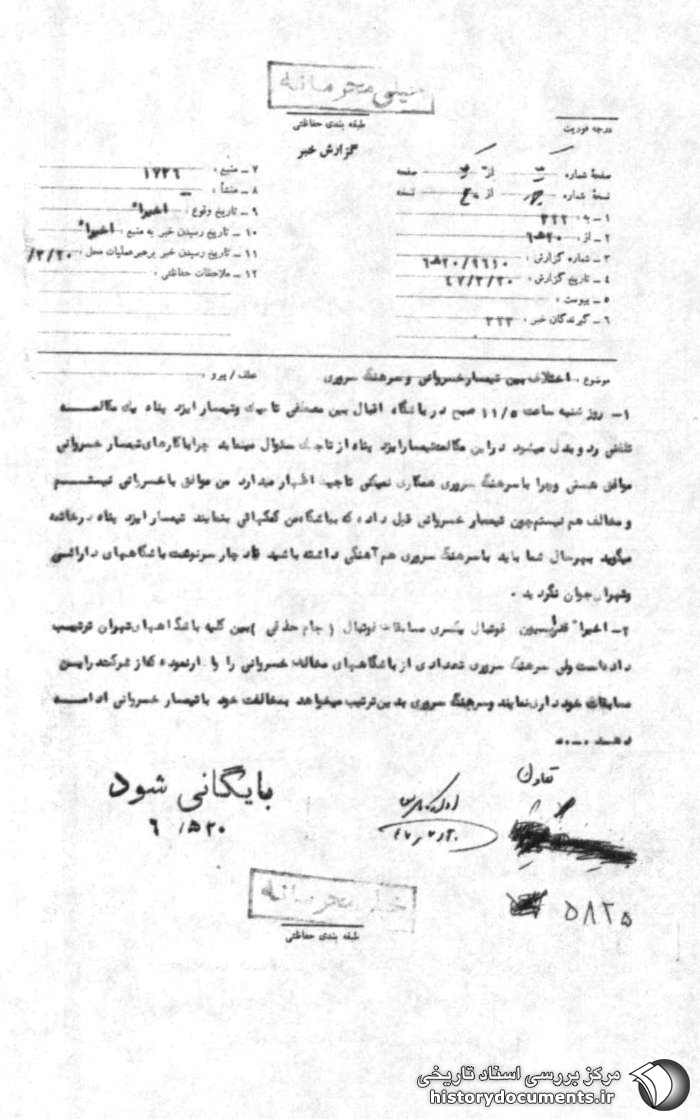 خیلی محرمانه
طبقه بندی حفاظتی
درجه فوریت
گزارش خبر
صفحهٔ شماره از صفحه
نسخهٔ شماره از نسخه
۱ - به ۳۲۲
۲ - از ، ۶ه۲۰
۳ - شماره گزارش ، ۶ه۲۰/۹۶۱۰
۴ - تاریخ گزارش ، ۴۷/۲/۲۰
۵ - پیوست ،
۶ - گیرندگان خبر ، ۳۲۲
۷ - منبع ، ۱۷۳۶
۸ - منشأ ، -
۹ - تاریخ وقوع ، اخیرا"
۱۰ - تاریخ رسیدن خبر به منبع ، اخیرا"
۱۱ - تاریخ رسیدن خبر برهبر عملیات محل ، /۲/۲۰
۱۲ - ملاحظات حفاظتی ،
موضوع ، اختلاف بین تیمسار خسروانی و سرهنگ سروری عطف / پیرو ،
۱- روز شنبه ساعت ۱۱/۵ صبح در باشگاه اقبال بین مصطفی تاجیک وتیمسار ایزد پناه یک مکالمه
تلفنی رد و بدل میشود در این مکالمه تیمسار ایزد پناه از تاجیک سئوال مینماید چرا با کارهای تیمسار خسروانی
موافق هستی وچرا با سرهنگ سروری همکاری نمیکنی تاجیک اظهار میدارد من موافق با خسروانی نیستم
و مخالف هم نیستم چون تیمسار خسروانی قول داده که بباشگاه من کمکهائی بنمایند تیمسار ایزد پناه در خاتمه
میگوید بهرحال شما باید با سرهنگ سروری هم آهنگی داشته باشید تا دچار سرنوشت باشگاههای دارائی
وتهران جوان نگردید .
۲- اخیرا" فدراسیون فوتبال یکسری مسابقات فوتبال ( جام حذفی ) بین کلیه باشگاههای تهران ترتیب
داده است ولی سرهنگ سروری تعدادی از باشگاههای مخالف خسروانی را وادار نموده که از شرکت در این
مسابقات خودداری نمایند وسرهنگ سروری بدین ترتیب میخواهد بمخالفت خود با تیمسار خسروانی ادامه
دهد .-.-.
تعاون
بایگانی شود
۶ /ه۲۰
۵۸۲۵
خیلی محرمانه
طبقه بندی حفاظتی
مرکز بررسی اسناد تاریخی
historydocuments.ir